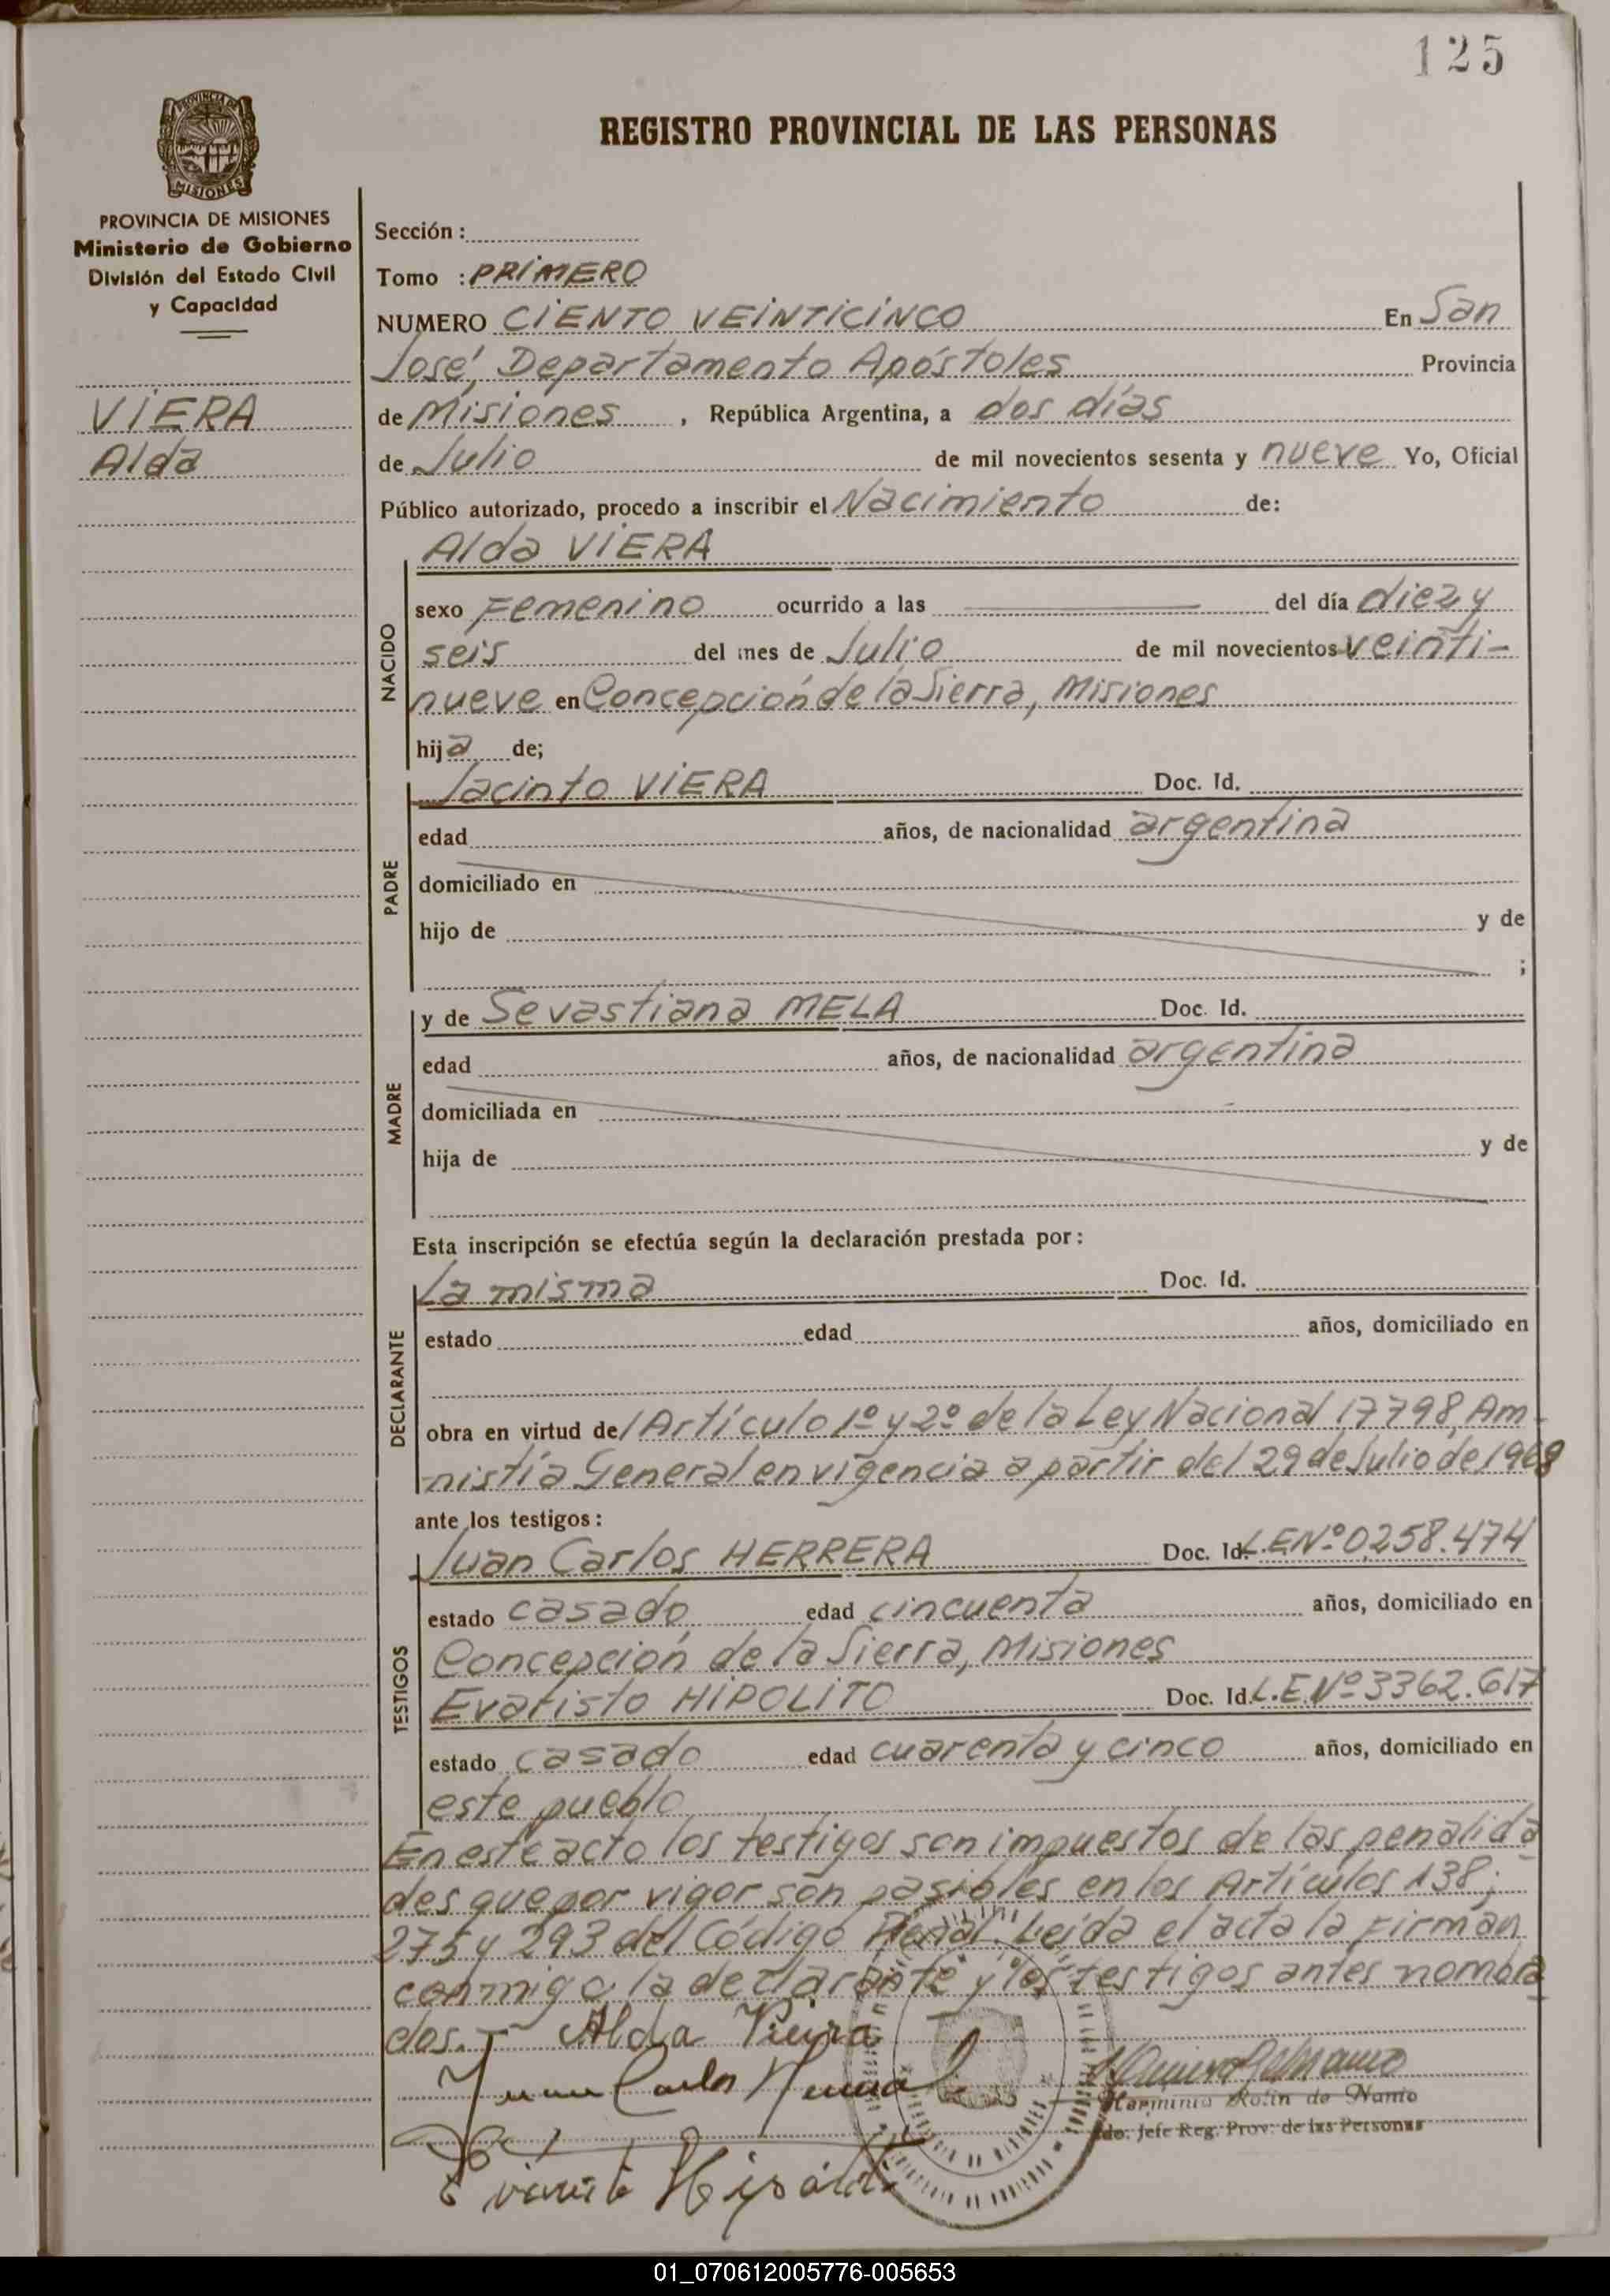 125
REGISTRO PROVINCIAL DE LAS PERSONAS
PROVINCIA DE MISIONES
MISIONES
PROVINCIA DE MISIONES
Ministerio de Gobierno
División del Estado Civil
y Capacidad
VIERA
Alda
Sección :
Tomo : PRIMERO
NUMERO CIENTO VEINTICINCO En San
José, Departamento Apóstoles Provincia
de Misiones , República Argentina, a dos días
de Julio de mil novecientos sesenta y nueve Yo, Oficial
Público autorizado, procedo a inscribir el Nacimiento de:
NACIDO
Alda VIERA
sexo Femenino ocurrido a las del día diez y
seis del mes de Julio de mil novecientos veinti-
nueve en Concepción de la Sierra, Misiones
hija de;
PADRE
Jacinto VIERA Doc. Id.
edad años, de nacionalidad argentina
domiciliado en
hijo de y de
;
MADRE
y de Sevastiana MELA Doc. Id.
edad años, de nacionalidad argentina
domiciliada en
hija de y de
Esta inscripción se efectúa según la declaración prestada por :
DECLARANTE
La misma Doc. Id.
estado edad años, domiciliado en
obra en virtud del Artículo 1º y 2º de la Ley Nacional 17798, Am-
nistía General en vigencia a partir del 29 de Julio de 1968
ante los testigos :
TESTIGOS
Juan Carlos HERRERA Doc. Id. L.E Nº 0258.474
estado casado edad cincuenta años, domiciliado en
Concepción de la Sierra, Misiones
Evaristo HIPOLITO Doc. Id. L.E. Nº 3362.617
estado casado edad cuarenta y cinco años, domiciliado en
este pueblo
En este acto los testigos son impuestos de las penalida
des que por vigor son pasibles en los Artículos 138;
275 y 293 del Código Penal. Leída el acta la firman
conmigo la declarante y los testigos antes nombra
dos.- Alda Vieira
Juan Carlos Herrera
Herminia Rolin de Nanio
Jefe Reg. Prov. de las Personas
Evaristo Hipólito
01_070612005776-005653